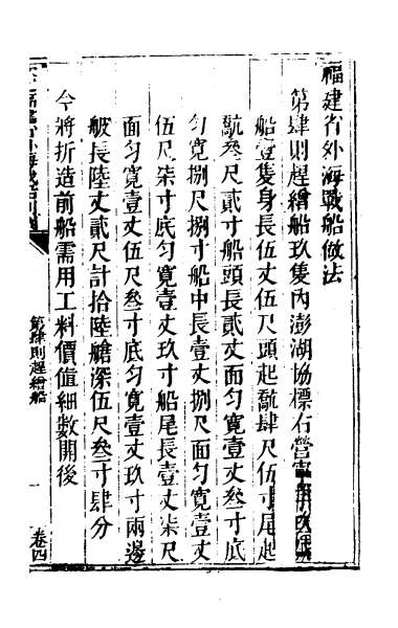 福建省外海戰船做法
第肆則趕繒船玖隻內澎湖協標右營寧
船壹隻身長伍丈伍尺頭起𦩷肆尺伍寸尾起
𦩷叁尺貳寸船頭長貳丈面勻寬壹丈叁寸底
勻寬捌尺捌寸船中長壹丈捌尺面勻寬壹丈
伍尺柒寸底勻寬壹丈玖寸船尾長壹丈柒尺
面勻寬壹丈伍尺叁寸底勻寬壹丈玖寸兩邊
舨長陸丈貳尺計拾陸艙深伍尺叁寸肆分
今將折造前船需用工料價值細數開後
第肆則趕繒船
一
卷四